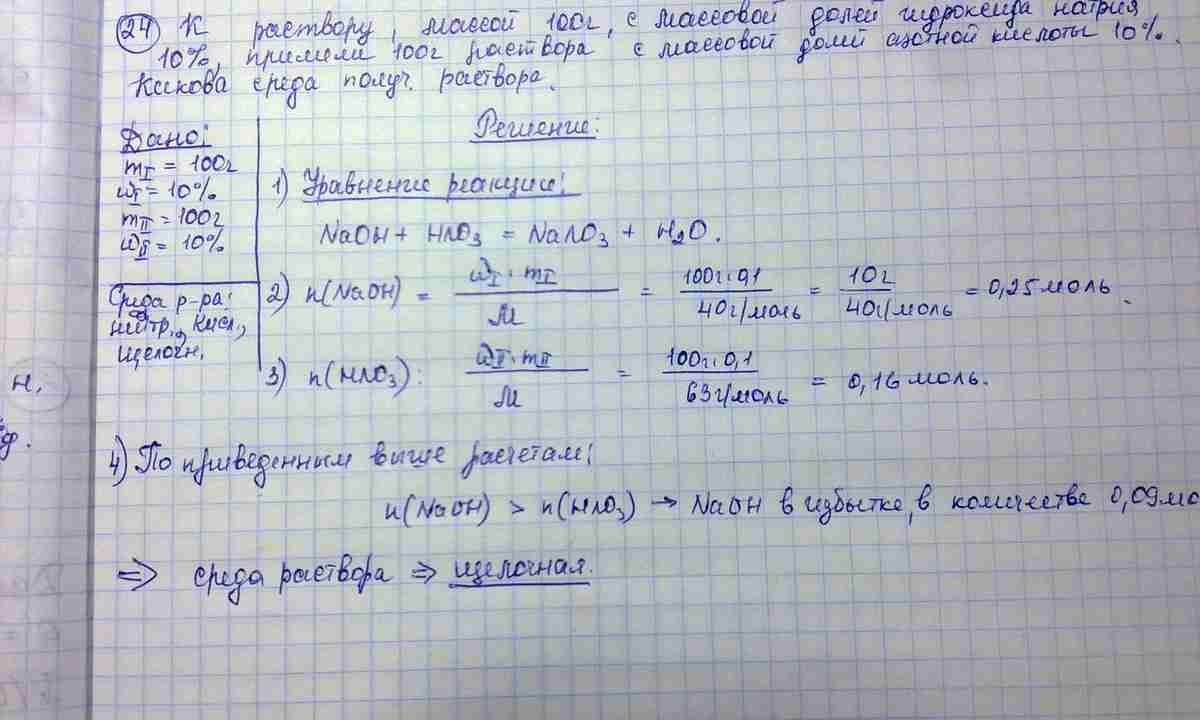 24 К раствору, массой 100г, с массовой долей гидроксида натрия
10%, прилили 100г раствора с массовой долей азотной кислоты 10%.
Какова среда получ. раствора.
Дано:
mI = 100г
ωI = 10%
mII = 100г
ωII = 10%
Среда р-ра:
нейтр., кисл.,
щелочн.
Решение:
1) Уравнение реакции:
NaOH + HNO3 = NaNO3 + H2O.
2) n(NaOH) = ωI · mI / M = 100г·0,1 / 40г/моль = 10г / 40г/моль = 0,25 моль.
3) n(HNO3): ωII · mII / M = 100г·0,1 / 63г/моль = 0,16 моль.
н.
4) По приведенным выше расчетам:
n(NaOH) > n(HNO3) → NaOH в избытке, в количестве 0,09мо
⇒ среда раствора ⇒ щелочная.